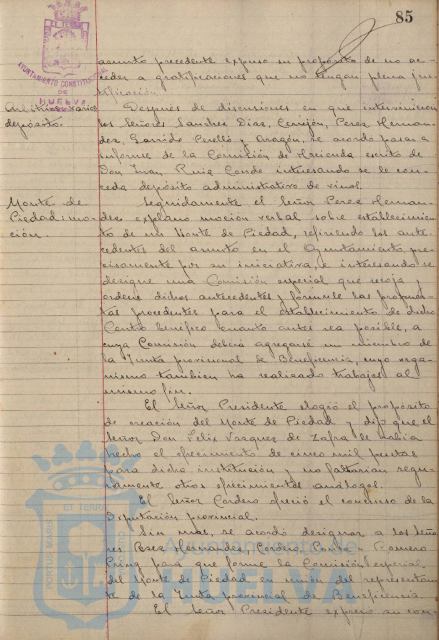 85
AYUNTAMIENTO CONSTITUCIONAL
DE
HUELVA
asunto precedente expuso su propósito de no ac-
ceder a gratificaciones que no tengan plena jus-
tificación.
Arbitrios varios
depósito.
Después de discusiones en que intervinieron
los Señores Sanchez Diaz, Cerrejón, Perez Hernan-
dez, Garrido Perelló y Aragón, se acordó pasar a
informe de la Comisión de Hacienda escrito de
Don Juan Ruiz Conde interesando se le con-
ceda depósito administrativo de vinos.
Monte de
Piedad: mo-
ción.
Seguidamente el Señor Perez Hernan-
dez explanó moción verbal sobre establecimien-
to de un Monte de Piedad, refiriendo los ante-
cedentes del asunto en el Ayuntamiento, pre-
cisamente por su iniciativa, e interesando se
designe una Comisión especial que recoja y
ordene dichos antecedentes y formule las propues-
tas procedentes para el establecimiento de dicho
Centro benéfico cuanto antes sea posible, a
cuya Comisión deberá agregarse un miembro de
la Junta provincial de Beneficencia, cuyo orga-
nismo tambien ha realizado trabajos al
mismo fin.
El Señor Presidente elogió el propósito
de creación del Monte de Piedad y dijo que el
Señor Don Felix Vazquez de Zafra le habia
hecho el ofrecimiento de cinco mil pesetas
para dicha institución y no faltarian segu-
ramente otros ofrecimientos análogos.
El Señor Cordero ofreció el concurso de la
Diputación provincial.
Sin mas, se acordó designar a los Seño-
res Perez Hernandez, Cordero, Conta y Romero
para que forme la Comisión especial
del Monte de Piedad en unión del representan-
te de la Junta provincial de Beneficencia.
El Señor Presidente expresó su con-